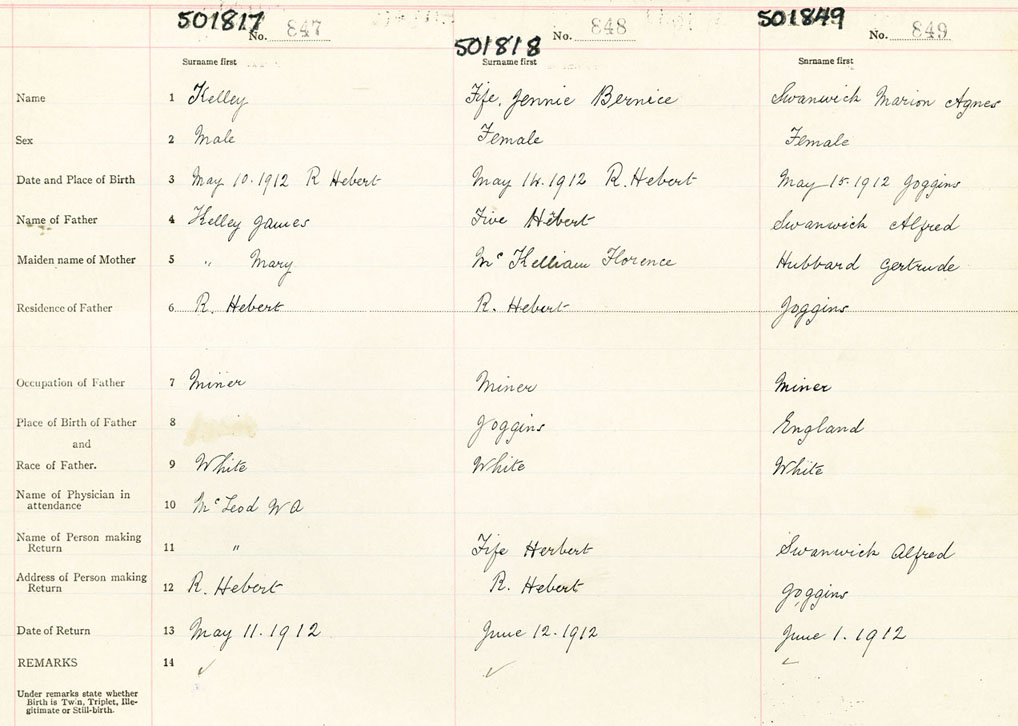 501817 No. 847 501818 No. 848 501849 No. 849
Surname first Surname first Surname first
Name 1 Kelley Fife, Jennie Bernice Swanwick Marion Agnes
Sex 2 Male Female Female
Date and Place of Birth 3 May 10.1912 R Hebert May 14.1912 R. Hebert May 15.1912 Joggins
Name of Father 4 Kelley James Five Hebert Swanwick Alfred
Maiden name of Mother 5 " Mary Mc Kelliam Florence Hubbard Gertrude
Residence of Father 6 R. Hebert R. Hebert Joggins
Occupation of Father 7 Miner Miner Miner
Place of Birth of Father 8 Joggins England
and
Race of Father. 9 White White White
Name of Physician in
attendance 10 Mc Leod W A
Name of Person making
Return 11 " Fife Herbert Swanwick Alfred
Address of Person making
Return 12 R. Hebert R. Hebert Joggins
Date of Return 13 May 11.1912 June 12.1912 June 1.1912
REMARKS 14 ✓ ✓ ✓
Under remarks state whether
Birth is Twin, Triplet, Ille-
gitimate or Still-birth.